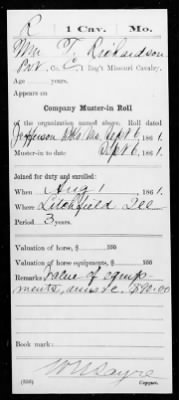 R | 1 Cav. | Mo.
Wm T. Richardson
Pvt, Co. C, Eng's Missouri Cavalry.
Age years.
Appears on
Company Muster-in Roll
of the organization named above. Roll dated
Jefferson Mo, Sept 6, 1861.
Muster-in to date Sept 6, 1861.
Joined for duty and enrolled:
When Aug 1, 1861.
Where Litchfield Ill
Period 3 years.
Valuation of horse, $ 100
Valuation of horse equipments, $ 100
Remarks: Value of equip-
ments, arms &c. $90.00
Book mark:
W H Sayre
(356) Copyist.